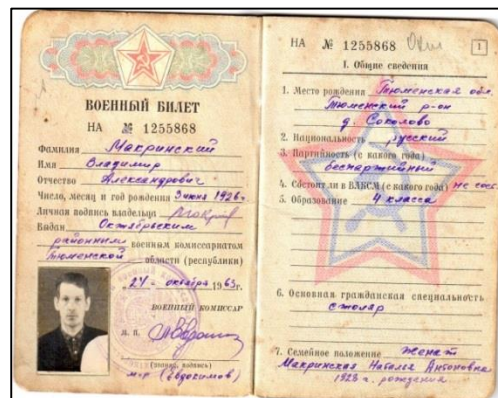 ВОЕННЫЙ БИЛЕТ
НА № 1255868
Фамилия Макринский
Имя Владимир
Отчество Александрович
Число, месяц и год рождения 9 июня 1926 г.
Личная подпись владельца
Выдан Октябрьским
районным военным комиссариатом
Тюменской области (республики)
"24" октября 1963 г.
ВОЕННЫЙ КОМИССАР
М. П.
(звание, подпись)
м-р (Евдокимов)
НА № 1255868
1
I. Общие сведения
1. Место рождения Тюменская обл.
Тюменский р-он
д. Соколово
2. Национальность русский
3. Партийность (с какого года)
беспартийный
4. Состоит ли в ВЛКСМ (с какого года) не сос
5. Образование 4 класса
6. Основная гражданская специальность
столяр
7. Семейное положение женат
Макринская Наталья Антоновна
1923 г. рождения